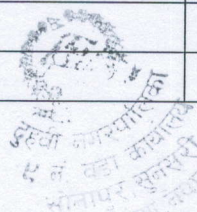 दुहवी नगरपालिका
९ नं. वडा कार्यालय
सोनापुर सुनसरी